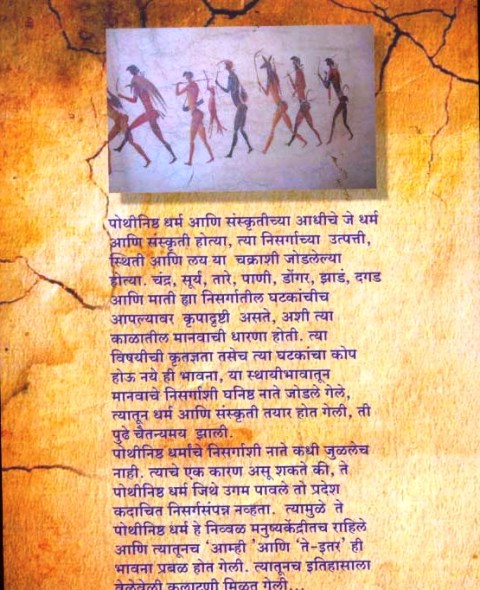 पोथीनिष्ठ धर्म आणि संस्कृतीच्या आधीचे जे धर्म
आणि संस्कृती होत्या, त्या निसर्गाच्या उत्पत्ती,
स्थिती आणि लय या चक्राशी जोडलेल्या
होत्या. चंद्र, सूर्य, तारे, पाणी, डोंगर, झाडं, दगड
आणि माती ह्या निसर्गातील घटकांचीच
आपल्यावर कृपादृष्टी असते, अशी त्या
काळातील मानवाची धारणा होती. त्या
विषयीची कृतज्ञता तसेच त्या घटकांचा कोप
होऊ नये ही भावना, या स्थायीभावातून
मानवाचे निसर्गाशी घनिष्ठ नाते जोडले गेले,
त्यातून धर्म आणि संस्कृती तयार होत गेली, ती
पुढे चैतन्यमय झाली.
पोथीनिष्ठ धर्माचे निसर्गाशी नाते कधी जुळलेच
नाही. त्याचे एक कारण असू शकते की, ते
पोथीनिष्ठ धर्म जिथे उगम पावले तो प्रदेश
कदाचित निसर्गसंपन्न नव्हता. त्यामुळे ते
पोथीनिष्ठ धर्म हे निव्वळ मनुष्यकेंद्रीतच राहिले
आणि त्यातूनच 'आम्ही 'आणि 'ते-इतर' ही
भावना प्रबळ होत गेली. त्यातूनच इतिहासाला
वेळोवेळी कलाटणी मिळत गेली...